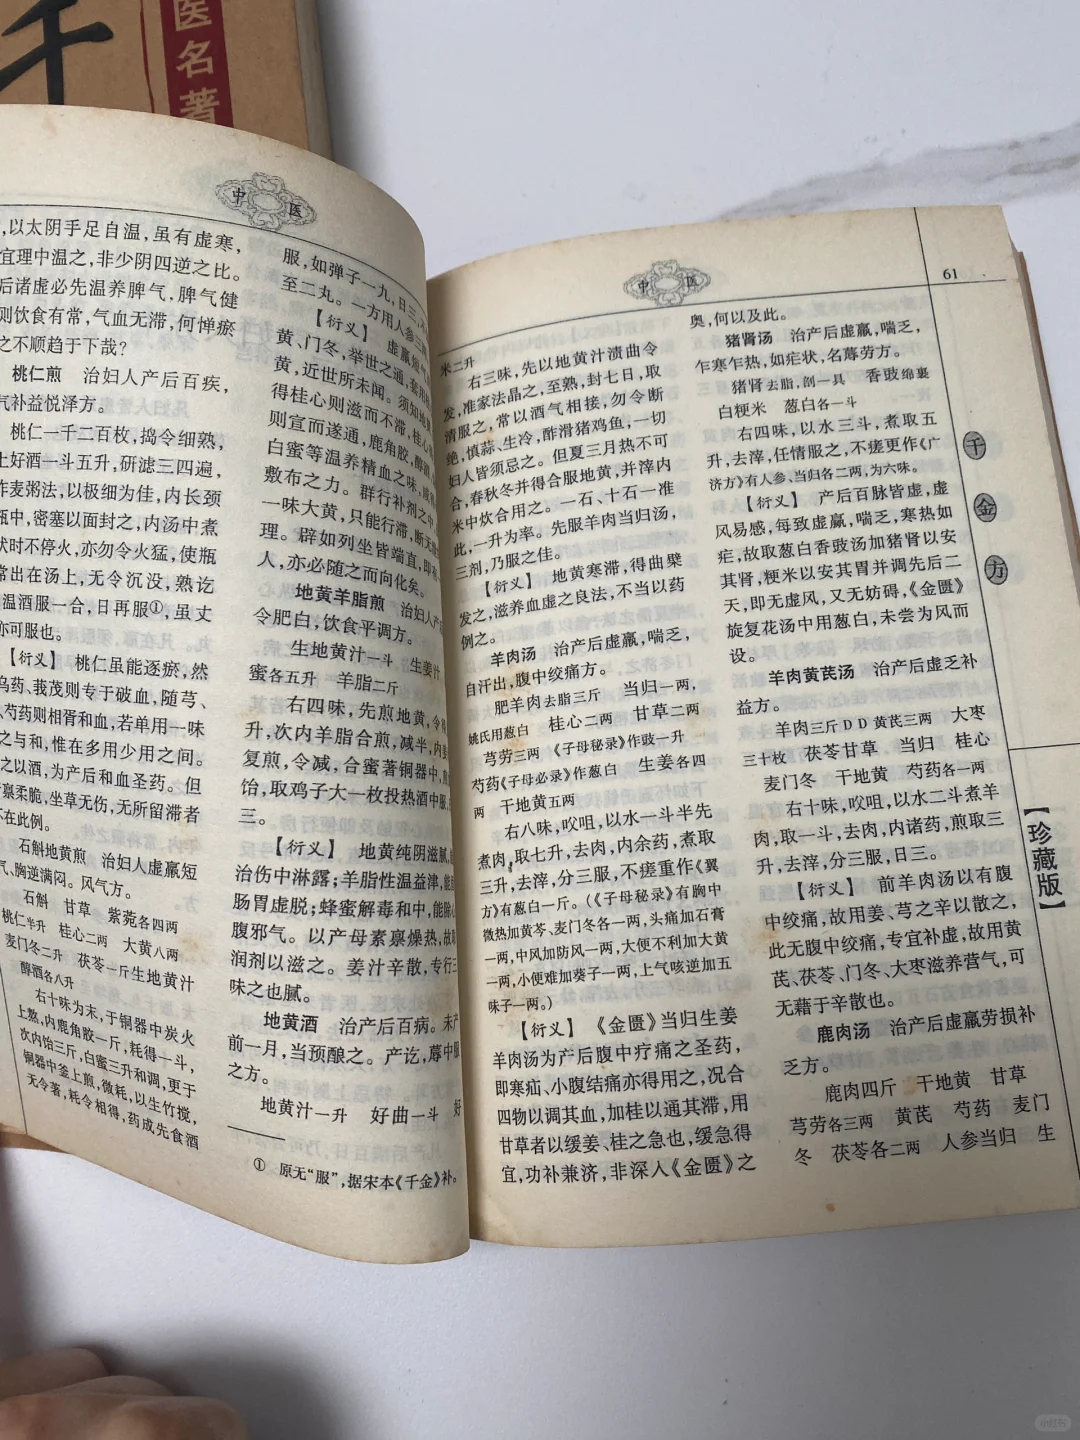 千
医名著
中 医
，以太阴手足自温，虽有虚寒，
宜理中温之，非少阴四逆之比。
后诸虚必先温养脾气，脾气健
则饮食有常，气血无滞，何惮瘀
之不顺趋于下哉？
桃仁煎 治妇人产后百疾，
气补益悦泽方。
桃仁一千二百枚，捣令细熟，
上好酒一斗五升，研滤三四遍，
作麦粥法，以极细为佳，内长颈
瓶中，密塞以面封之，内汤中煮
伏时不停火，亦勿令火猛，使瓶
常出在汤上，无令沉没，熟讫
温酒服一合，日再服①，虽丈
亦可服也。
【衍义】 桃仁虽能逐瘀，然
乌药、莪茂则专于破血，随芎、
芍药则相胥和血，若单用一味
之与和，惟在多用少用之间。
之以酒，为产后和血圣药。但
禀柔脆，坐草无伤，无所留滞者
不在此例。
石斛地黄煎 治妇人虚羸短
气，胸逆满闷。风气方。
石斛 甘草 紫菀各四两
桃仁半升 桂心二两 大黄八两
麦门冬二升 茯苓一斤生地黄汁
醇酒各八升
右十味为末，于铜器中炭火
上熬，内鹿角胶一斤，耗得一斗，
次内饴三斤，白蜜三升和调，更于
铜器中釜上煎，微耗，以生竹搅，
无令著，耗令相得，药成先食酒
服，如弹子一丸，日三，
至二丸。一方用人参三两
【衍义】 虚羸短气
黄、门冬，举世之通
黄，近世所未闻。须知地黄
得桂心则滋而不滞，桂心
则宣而遂通，鹿角胶，醇酒
白蜜等温养精血之味，咸
敷布之力。群行补剂之中，
一味大黄，只能行滞，断无
理。辟如列坐皆端直，即有
人，亦必随之而向化矣。
地黄羊脂煎 治妇人产
令肥白，饮食平调方。
生地黄汁一斗 生姜汁
蜜各五升 羊脂二斤
右四味，先煎地黄，令
升，次内羊脂合煎，减半，内
复煎，令减，合蜜著铜器中，煎
饴，取鸡子大一枚投热酒中服，
三。
【衍义】 地黄纯阴滋腻，
治伤中淋露；羊脂性温益津，能
肠胃虚脱；蜂蜜解毒和中，能
腹邪气。以产母素禀燥热，故
润剂以滋之。姜汁辛散，专行三
味之也腻。
地黄酒 治产后百病。未产
前一月，当预酿之。产讫，蓐中服
之方。
地黄汁一升 好曲一斗 好
① 原无“服”，据宋本《千金》补。
中 医
61
米二升
右三味，先以地黄汁渍曲令
发，准家法晶之，至熟，封七日，取
清服之，常以酒气相接，勿令断
绝，慎蒜、生冷，酢滑猪鸡鱼，一切
妇人皆须忌之。但夏三月热不可
合，春秋冬并得合服地黄，并滓内
米中炊合用之。一石、十石一准
此，一升为率。先服羊肉当归汤，
三剂，乃服之佳。
【衍义】 地黄寒滞，得曲檗
发之，滋养血虚之良法，不当以药
例之。
羊肉汤 治产后虚羸，喘乏，
自汗出，腹中绞痛方。
肥羊肉去脂三斤 当归一两，
姚氏用葱白 桂心二两 甘草二两
芎劳三两《子母秘录》作豉一升
芍药《子母必录》作葱白 生姜各四
两 干地黄五两
右八味，㕮咀，以水一斗半先
煮肉，取七升，去肉，内余药，煮取
三升，去滓，分三服，不瘥重作《翼
方》有葱白一斤。（《子母秘录》有胸中
微热加黄芩、麦门冬各一两，头痛加石膏
一两，中风加防风一两，大便不利加大黄
一两，小便难加葵子一两，上气咳逆加五
味子一两。）
【衍义】 《金匮》当归生姜
羊肉汤为产后腹中疗痛之圣药，
即寒疝、小腹结痛亦得用之，况合
四物以调其血，加桂以通其滞，用
甘草者以缓姜、桂之急也，缓急得
宜，功补兼济，非深人《金匮》之
奥，何以及此。
猪肾汤 治产后虚羸，喘乏，
乍寒乍热，如疟状，名蓐劳方。
猪肾去脂，剖一具 香豉绵裹
白粳米 葱白各一斗
右四味，以水三斗，煮取五
升，去滓，任情服之，不瘥更作《广
济方》有人参、当归各二两，为六味。
【衍义】 产后百脉皆虚，虚
风易感，每致虚羸，喘乏，寒热如
疟，故取葱白香豉汤加猪肾以安
其肾，粳米以安其胃并调先后二
天，即无虚风，又无妨碍，《金匮》
旋复花汤中用葱白，未尝为风而
设。
羊肉黄芪汤 治产后虚乏补
益方。
羊肉三斤DD黄芪三两 大枣
三十枚 茯苓甘草 当归 桂心
麦门冬 干地黄 芍药各一两
右十味，㕮咀，以水二斗煮羊
肉，取一斗，去肉，内诸药，煎取三
升，去滓，分三服，日三。
【衍义】 前羊肉汤以有腹
中绞痛，故用姜、芎之辛以散之，
此无腹中绞痛，专宜补虚，故用黄
芪、茯苓、门冬、大枣滋养营气，可
无藉于辛散也。
鹿肉汤 治产后虚羸劳损补
乏方。
鹿肉四斤 干地黄 甘草
芎劳各三两 黄芪 芍药 麦门
冬 茯苓各二两 人参当归 生
千
金
方
【珍藏版】
小红书